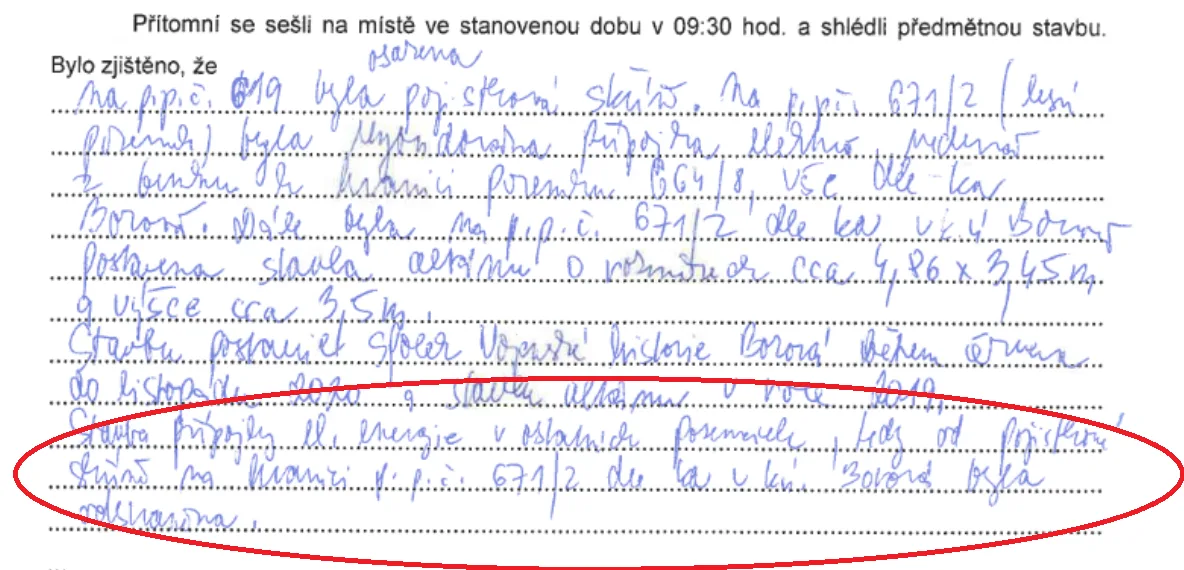 Přítomní se sešli na místě ve stanovenou dobu v 09:30 hod. a shlédli předmětnou stavbu.
osazena
Bylo zjištěno, že
na p.p.č. 619 byla pojistková skříň. Na p.p.č. 671/2 (lesní
pozemek) byla přípojka elektro, vedena
k hranici pozemku 664/8, vše dle ka
Borová. Dále byla na p.p.č. 671/2 dle ka v k.ú Borová
postavena stavba altánu o rozměrech cca 4,86 x 3,45 m,
a výšce cca 3,5 m.
Stavbu postavil spolek Vojenské historie Borová během června
do listopadu 2020 a stavbu altánu v roce 2019.
Stavba přípojky el. energie v ostatních pozemcích, tedy od pojistkové
skříně na hranici p.p.č. 671/2 dle ka v k.ú. Borová byla
odstraněna.